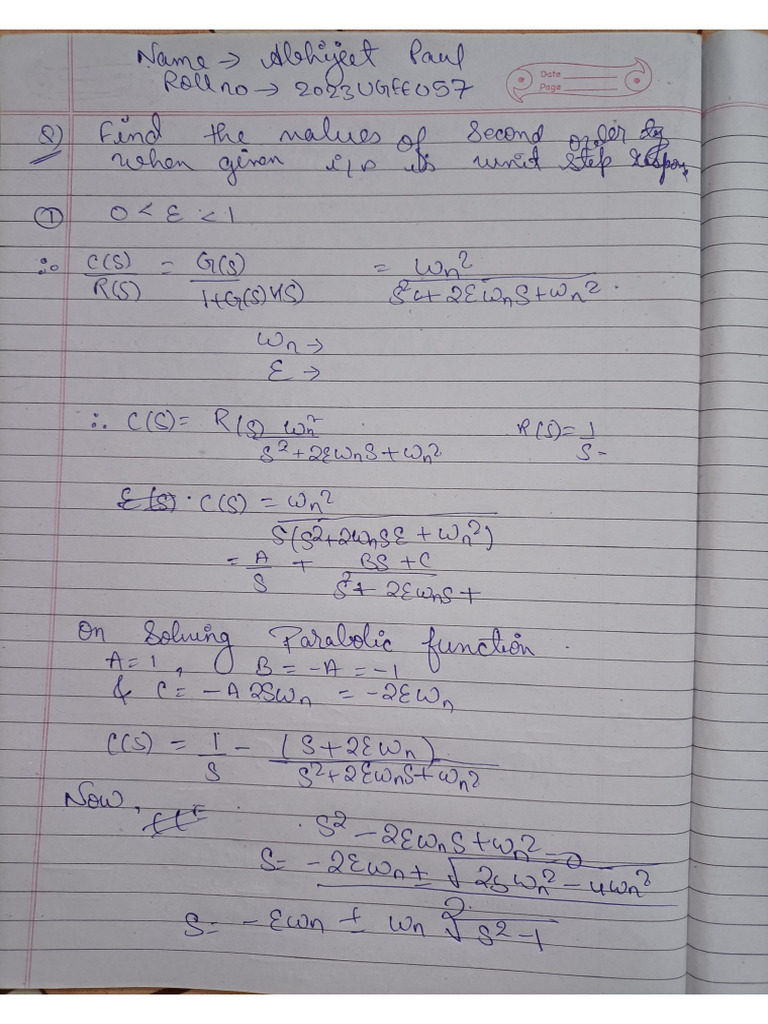 Name → Abhijeet Paul
Roll no → 2023UGEE057
Date
Page
Q) Find the values of Second order sy
when given i/p is unit step respon
① 0 < ε < 1
∴ C(S)/R(S) = G(S)/1+G(S)H(S) = ωn²/S²+2εωnS+ωn².
ωn →
ε →
∴ C(S) = R(S) ωn²/S²+2εωnS+ωn² R(S) = 1/S
C(S) = ωn²/S(S²+2ωnSε+ωn²)
= A/S + BS+C/S²+2εωnS+
On Solving Parabolic function.
A=1, B = -A = -1
& C = -A2Sωn = -2εωn
C(S) = 1/S - (S+2εωn)/S²+2εωnS+ωn²
Now,
S² - 2εωnS+ωn² = 0
S = -2εωn ± √2Sωn² - 4ωn²/2
S = -εωn ± ωn √S²-1